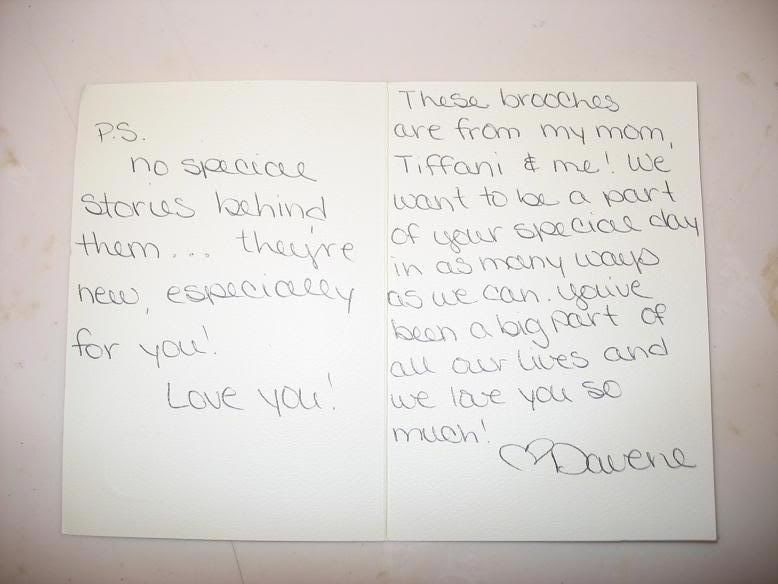 These brooches
are from my mom,
Tiffani & me! We
want to be a part
of your special day
in as many ways
as we can. You've
been a big part of
all our lives and
we love you so
much!
♡Davene
P.S.
no special
stories behind
them... they're
new, especially
for you!
Love you!